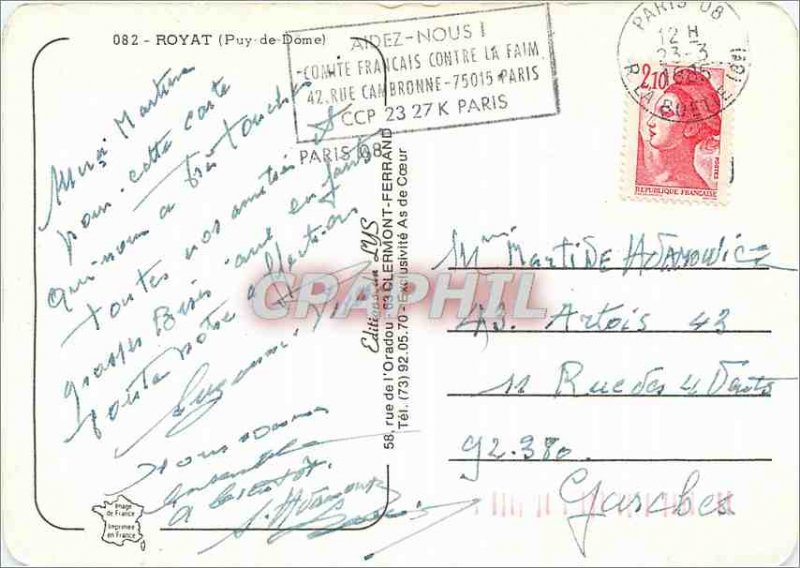 082 - ROYAT (Puy-de-Dôme)
AIDEZ-NOUS !
COMITE FRANCAIS CONTRE LA FAIM
42, RUE CAMBRONNE - 75015 PARIS
CCP 23 27 K PARIS
PARIS 08
PARIS 08
12 H
23-3
1985
R. LA BOETIE (8E)
2,10
POSTES
REPUBLIQUE FRANÇAISE
Merci Martine
pour cette carte
qui nous a très touchés
toutes nos amitiés et
grosses Bises aux enfants
toute notre affection
Suzanne
nous serons
ensemble
A bientôt.
Editions du LYS
58, rue de l'Oradou - 63 CLERMONT-FERRAND
Tél. (73) 92.05.70 - Exclusivité As de Cœur
CPAPHIL
Mme Martine Adamowicz
43. Artois 43
11 Rue des 4 Vents
92.380.
Garches
Image
de France
Imprimée
en France